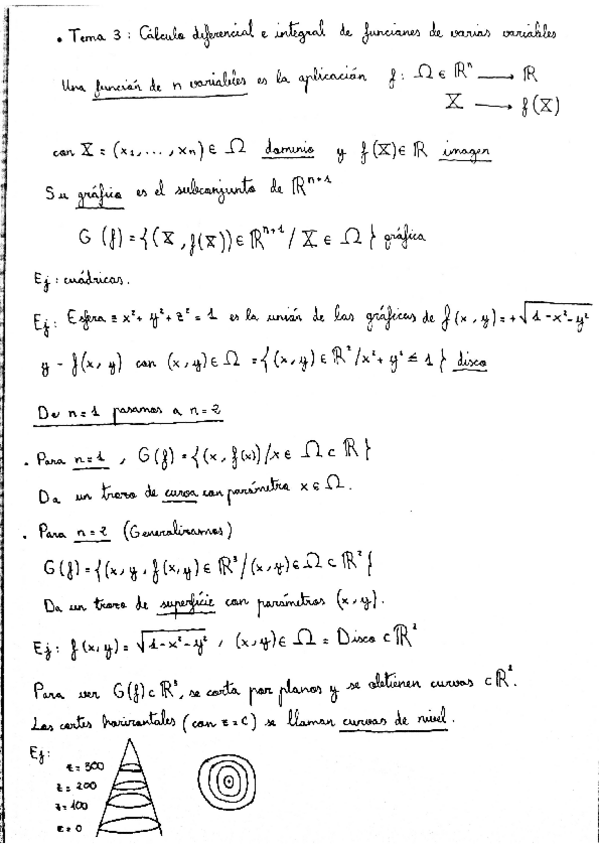 • Tema 3: Cálculo diferencial e integral de funciones de varias variables
Una función de n variables es la aplicación f: Ω ∈ ℝⁿ ⟶ ℝ
X ⟶ f(X)
con X = (x₁, ..., xₙ) ∈ Ω dominio y f(X) ∈ ℝ imagen
Su gráfica es el subconjunto de ℝⁿ⁺¹
G (f) = {(X, f(X)) ∈ ℝⁿ⁺¹ / X ∈ Ω} gráfica
Ej: cuádricas.
Ej: Esfera ≡ x² + y² + z² = 1 es la unión de las gráficas de f(x, y) = +√1-x²-y²
y - f(x, y) con (x, y) ∈ Ω = {(x, y) ∈ ℝ² / x² + y² ≤ 1} disco
De n=1 pasamos a n=2
• Para n=1, G(f) = {(x, f(x)) / x ∈ Ω ⊂ ℝ}
Da un trozo de curva con parámetro x ∈ Ω.
• Para n=2 (Generalizamos)
G(f) = {(x, y, f(x, y) ∈ ℝ³ / (x, y) ∈ Ω ⊂ ℝ²}
Da un trozo de superficie con parámetros (x, y).
Ej: f(x, y) = √1-x²-y², (x, y) ∈ Ω = Disco ⊂ ℝ²
Para ver G(f) ⊂ ℝ³, se corta por planos y se obtienen curvas ⊂ ℝ².
Los cortes horizontales (con z = c) se llaman curvas de nivel.
Ej:
z = 300
z = 200
z = 100
z = 0